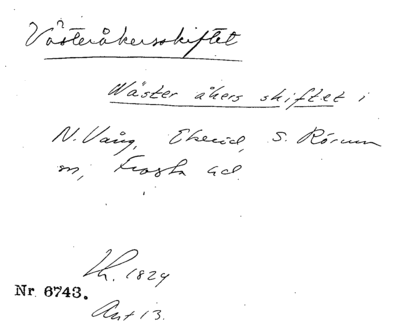 Västeråkersskiftet
Wäster åkers skiftet i
N. Vång, Ekerid, S. Rörum
sn, Frosta hd.
Lh. 1824
Nr. 6743.
Akt 13.